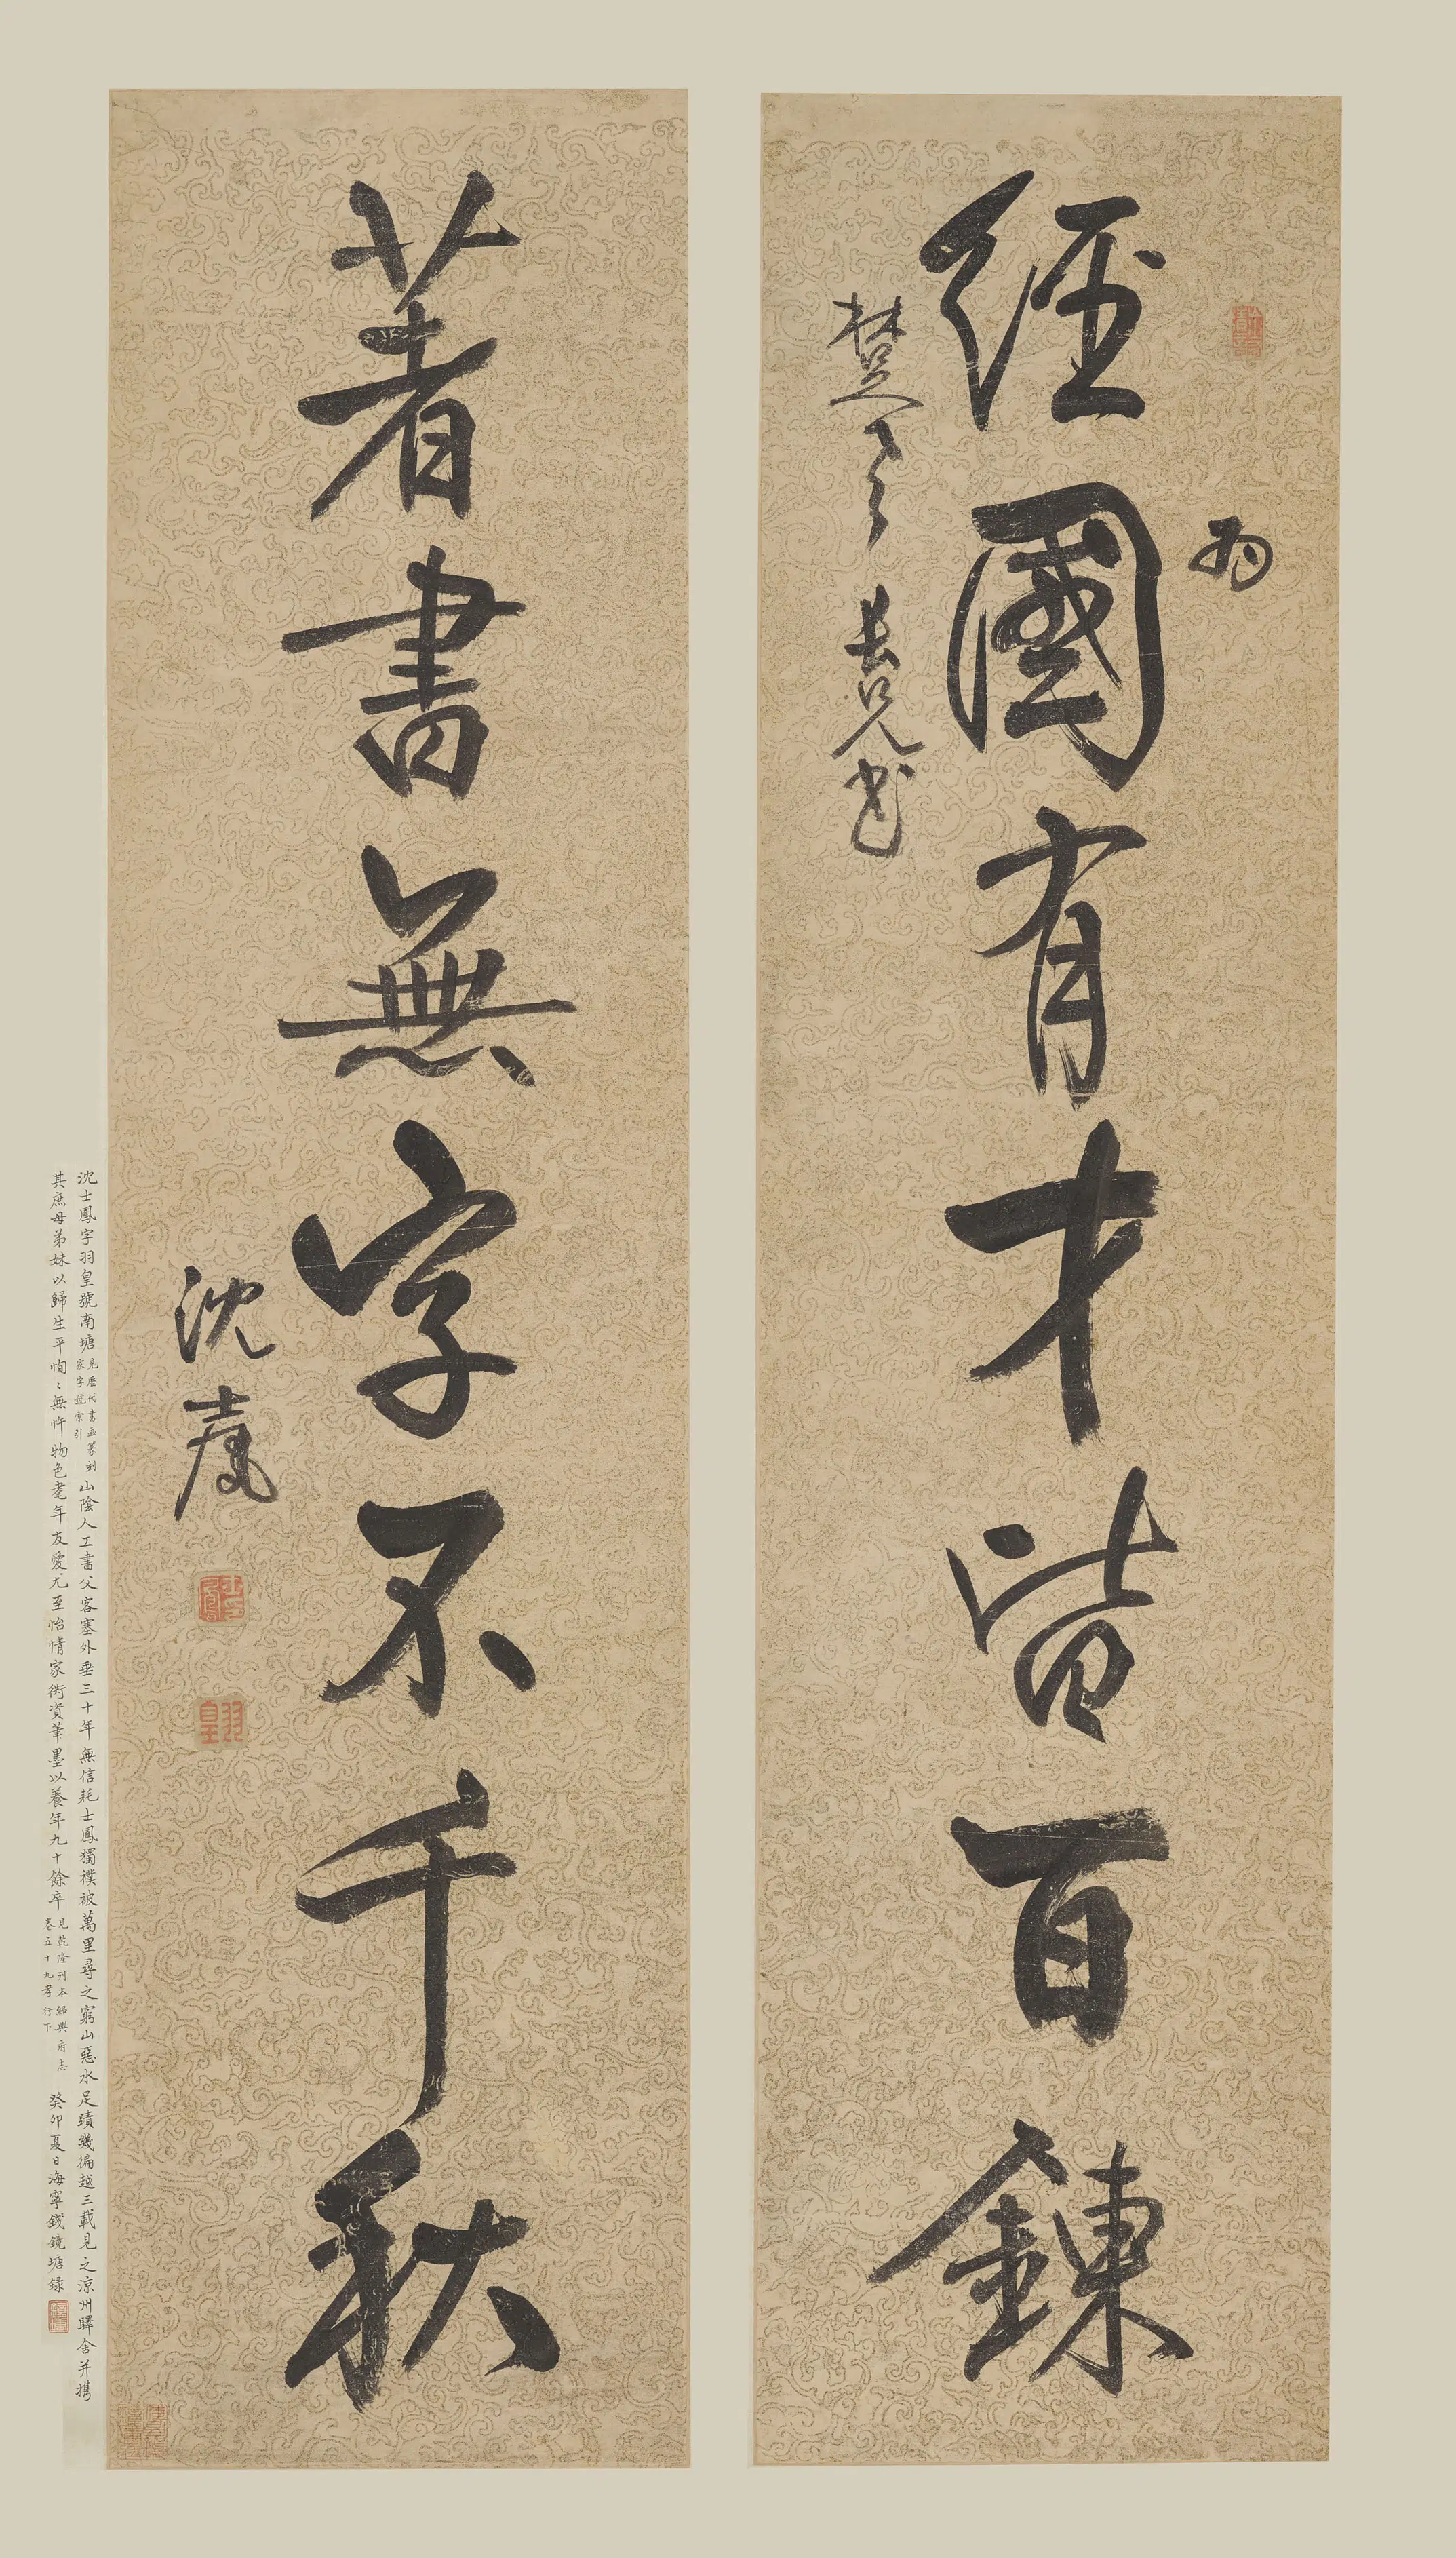 經國有才皆百鍊
為
楚
長兄書
著書無字不千秋
沈士鳳
士鳳
羽皇
沈士鳳字羽皇號南塘見歷代書畫篆刻家字號索引山陰人工書父客塞外垂三十年無信耗士鳳獨襆被萬里尋之窮山惡水足蹟幾徧越三載見之涼州驛舍并攜
其庶母弟妹以歸生平恂〻無忤物色耄年友愛尤至怡情家衖資筆墨以養年九十餘卒見乾隆刊本紹興府志卷五十九孝行下 癸卯夏日海寧錢鏡塘錄